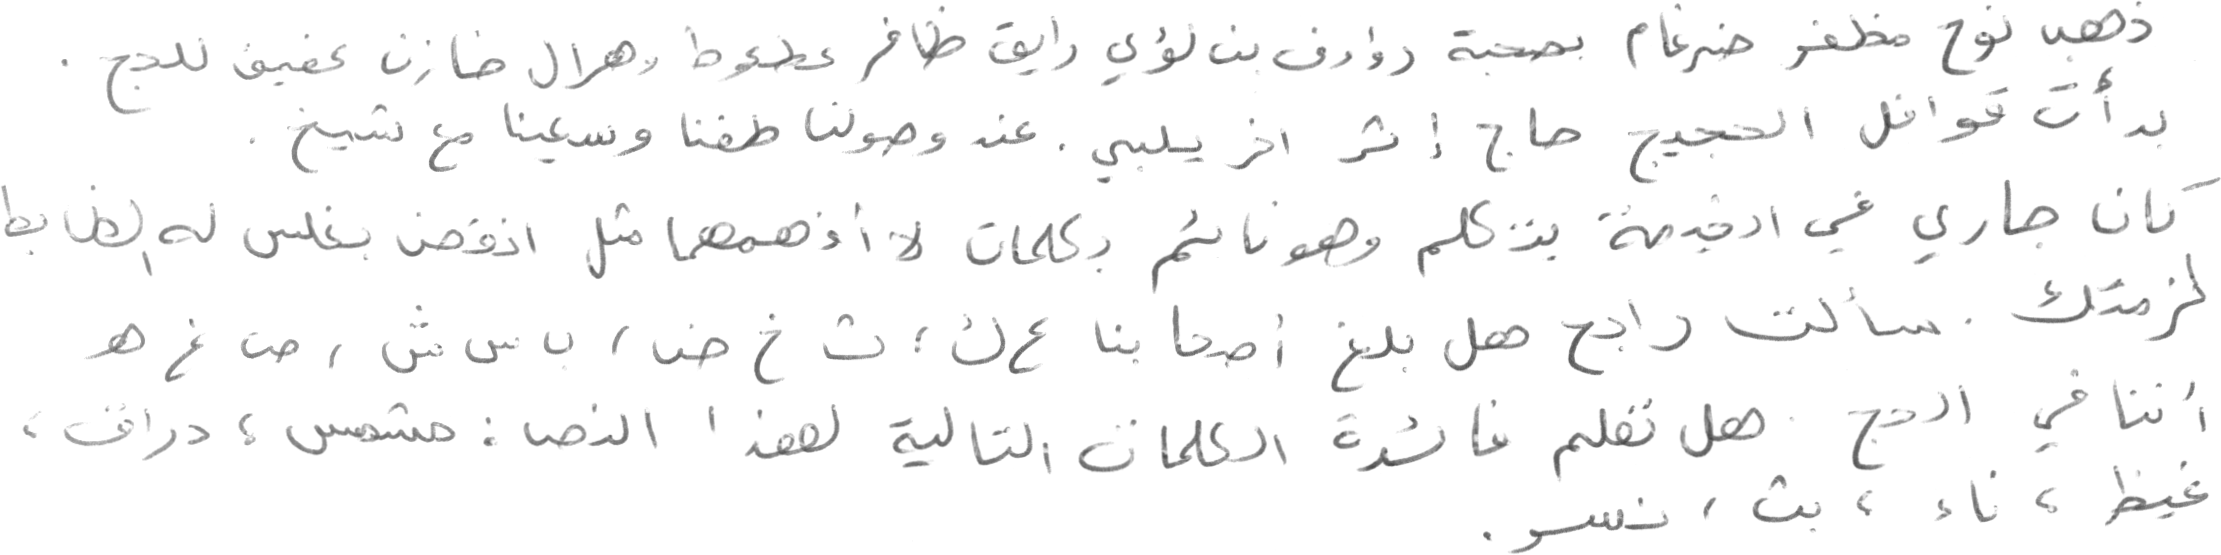 ذهب نوح مظفر ضرغام بصحبة رؤوف بن لؤي رايق ظافر عطعوط وهلال خازن عفيف للحج .
بدأت قوافل الحجيج حاج إثر اخر يلبي . عند وصولنا طفنا وسعينا مع شيخ .
كان جاري في الخيمة يتكلم وهو نائم بكلمات لا أفهمها مثل انقض بغلس له الظابط
لزمتك . سألت راجح هل بلغ أصحابنا ع ك ؛ ث خ ض ، ب س ش ، ص غ ه
أننا في الحج . هل تعلم فائدة الكلمات التالية لهذا النص : مشمس ، دراق ،
غيظ ، ناء ، بث ، نسر .